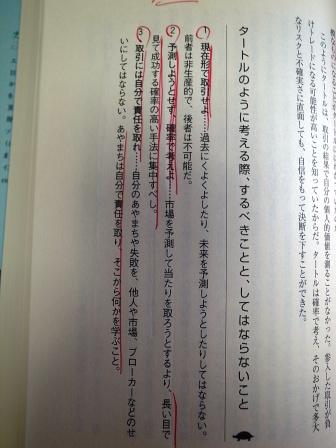 このようにタートルは、取引の結果で自分の個人的価値を測ることがなかった。参入した取引が負
けトレードになる可能性が高いことを知っていたからだ。タートルは確率で考え、そのおかげで多大
なリスクと不確実さに直面しても、自信をもって決断を下すことができた。
タートルのように考える際、するべきことと、してはならないこと
1 現在形で取引せよ……過去にくよくよしたり、未来を予測しようとしたりしてはならない。
前者は非生産的で、後者は不可能だ。
2 予測しようとせず、確率で考えよ……市場を予測して当たりを取ろうとするより、長い目で
見て成功する確率の高い手法に集中すべし。
3 取引には自分で責任を取れ……自分のあやまちや失敗を、他人や市場、ブローカーなどのせ
いにしてはならない。あやまちは自分で責任を取り、そこから何かを学ぶこと。